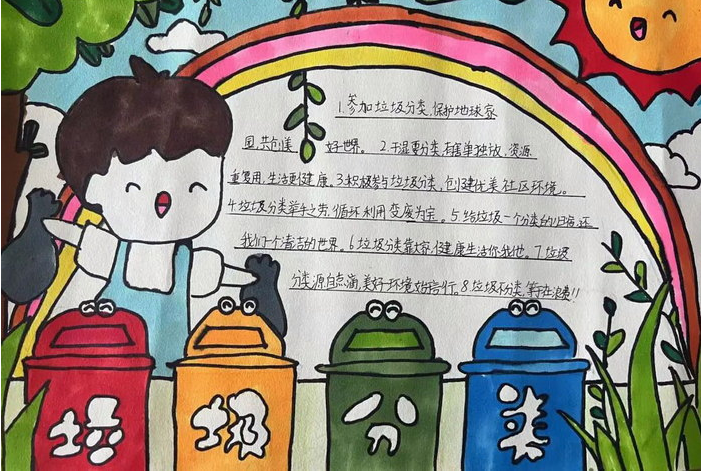 1.参加垃圾分类,保护地球家
园,共创美 好世界。 2.干湿要分类,有害单独放,资源
重复用,生活更健康。3.积极参与垃圾分类,创建优美社区环境。
4.垃圾分类举手之劳,循环利用变废为宝。5.给垃圾一个分类的归宿,还
我们一个清洁的世界。6.垃圾分类靠大家,健康生活你我他。7.垃圾
分类源自点滴,美好环境始于行。8.垃圾不分类,等于在浪费!!
垃 圾 分 类